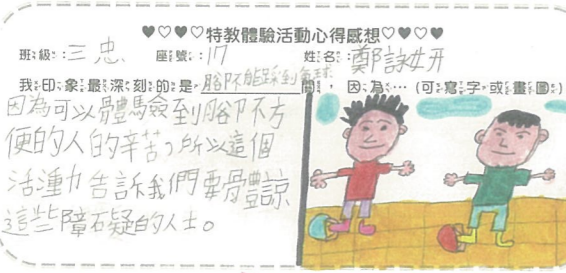 ♥♡♥♡特教體驗活動心得感想♡♥♡♥
班級：三忠 座號：17 姓名：鄭詠妍
我印象最深刻的是腳不能踩到氣球關，因為…（可寫字或畫圖）
因為可以體驗到腳不方
便的人的辛苦，所以這個
活動告訴我們要體諒
這些障礙的人士。